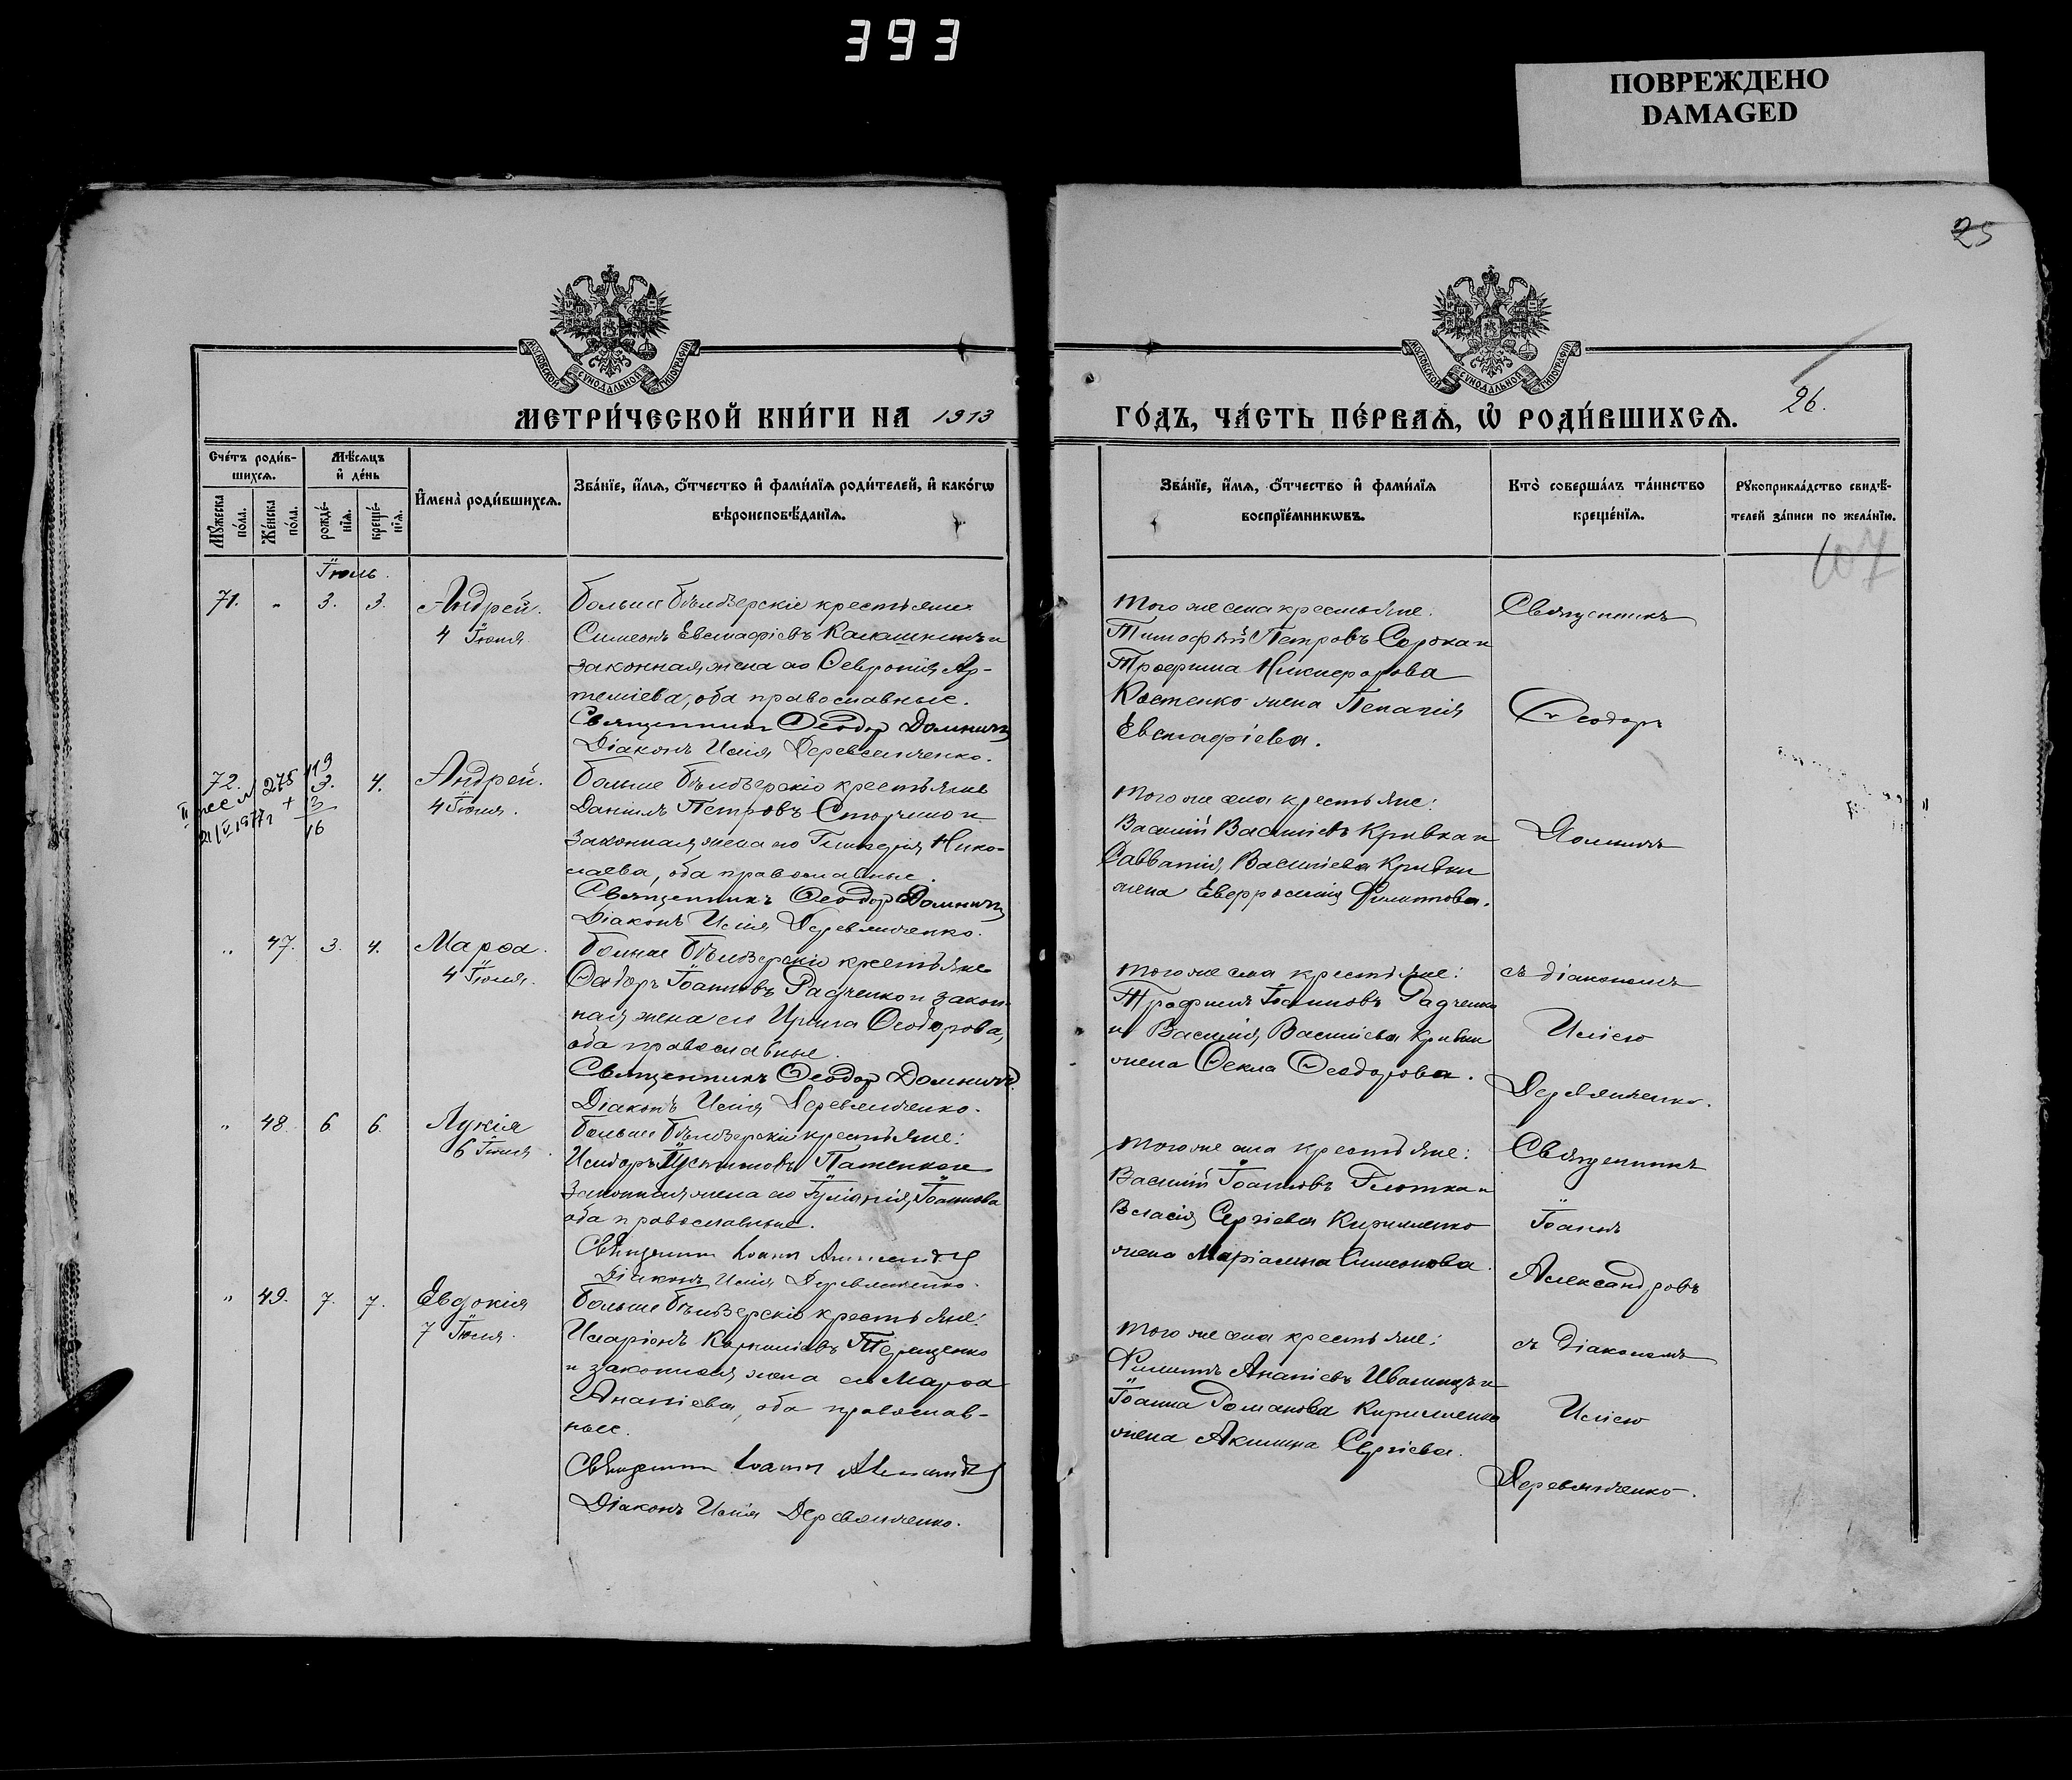 393
ПОВРЕЖДЕНО
DAMAGED
25
МОСКОВСКОЙ СУНОДАЛЬНОЙ ТИПОГРАФІИ
МОСКОВСКОЙ СУНОДАЛЬНОЙ ТИПОГРАФІИ
МЕТРИ́ЧЕСКОЙ КНИ́ГИ НА 1913
ГО́ДЪ, ЧА́СТЬ ПЕ́РВАѦ, Ѡ҆ РОДИ́ВШИХСѦ.
26.
Сче́тъ роди́в-
шихсѧ.
Мꙋ́жеска
по́ла.
Же́нска
по́ла.
Мѣ́сѧцъ
и҆ де́нь
рожде́-
нїѧ.
креще́-
нїѧ.
И҆мена̀ роди́вшихсѧ.
Зва́нїе, и҆́мѧ, ѻ҆́тчество и҆ фами́лїѧ роди́телей, и҆ како́гѡ
вѣроисповѣ́данїѧ.
Зва́нїе, и҆́мѧ, ѻ҆́тчество и҆ фами́лїѧ
воспрїе́мникѡвъ.
Кто̀ соверша́лъ та́инство
креще́нїѧ.
Рꙋкоприкла́дство свидѣ́-
телей за́писи по жела́нїю.
107
Іюль.
71. " 3. 3. Андрей.
4 Іюля.
Больше Бѣлозерскіе крестьяне
Симеонъ Евстафіевъ Калашникъ и
законная жена его Февронія Ар-
теміева, оба православные.
Священникъ Ѳеодоръ Домничъ
Діаконъ Илія Деревянченко.
того же села крестьяне:
Тимофѣй Петровъ Сорока и
Трофима Никифорова
Костенко жена Пелагія
Евстафіева.
Священникъ
Ѳеодоръ
Домничъ
72. 3. 4. Андрей.
4 Іюля.
275
16
Больше Бѣлозерскіе крестьяне
Даніилъ Петровъ Сторчило и
законная жена его Гликерія Нико-
лаева, оба православные.
Священникъ Ѳеодоръ Домничъ
Діаконъ Илія Деревянченко.
того же села крестьяне:
Василій Васильевъ Кривка и
Савватія Васильева Кривки
жена Евфросинія Филиппова.
" 47. 3. 4. Марѳа.
4 Іюля.
Больше Бѣлозерскіе крестьяне
Ѳеодоръ Іоанновъ Радченко и закон-
ная жена его Ирина Ѳеодорова,
оба православные.
Священникъ Ѳеодоръ Домничъ
Діаконъ Илія Деревянченко.
того же села крестьяне:
Трофимъ Іоанновъ Радченко
и Василія Васильева Кривки
жена Ѳекла Ѳеодорова.
съ діакономъ
Иліею
Деревянченко.
" 48. 6. 6. Лукія
6 Іюля.
Больше Бѣлозерскіе крестьяне:
Исидоръ Іустиновъ Патенко и
законная жена его Іуліанія Іоаннова
оба православные.
Священникъ Іоаннъ Александровъ
Діаконъ Илія Деревянченко.
того же села крестьяне:
Василій Іоанновъ Глотка и
Власія Сергіева Кириленко
жена Маріамна Симеонова.
Священникъ
Іоаннъ
Александровъ
" 49. 7. 7. Евдокія
7 Іюля.
Больше Бѣлозерскіе крестьяне:
Иларіонъ Корниліевъ Терещенко
и законная жена его Марѳа
Ананіева, оба православ-
ные.
Священникъ Іоаннъ Александровъ
Діаконъ Илія Деревянченко.
того же села крестьяне:
Филиппъ Ананіевъ Иваницъ и
Іоанна Романова Кириленко
жена Акилина Сергіева.
съ Діакономъ
Иліею
Деревянченко.